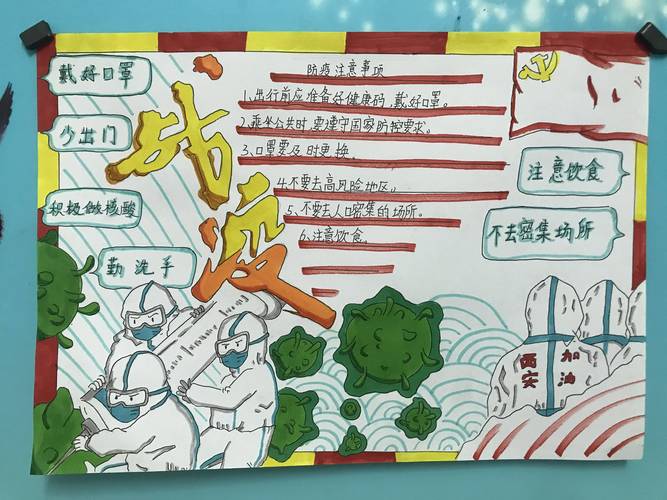 戴好口罩
少出门
积极做核酸
勤洗手
战疫
防疫注意事项
1、出行前应准备好健康码，戴好口罩。
2、乘坐公共时，要遵守国家防控要求。
3、口罩要及时更换。
4、不要去高风险地区。
5、不要去人口密集的场所。
6、注意饮食。
注意饮食
不去密集场所
西安
加油